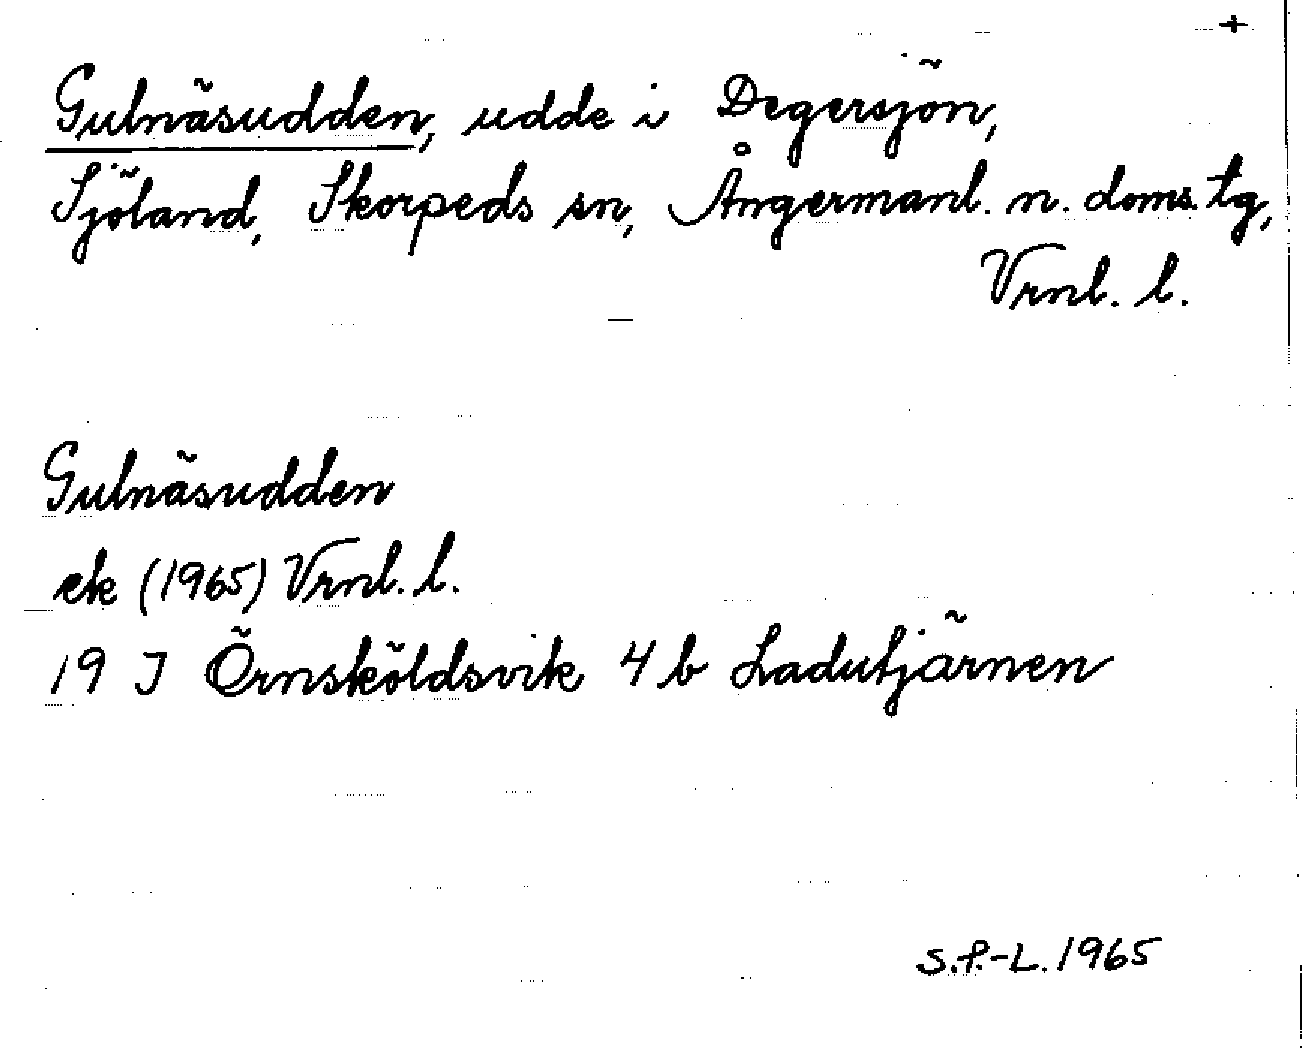 +
Gulnäsudden, udde i Degersjön,
Sjöland, Skorpeds sn, Ångermanl. n. doms. tg,
Vrnl. l.
Gulnäsudden
ek (1965) Vrnl. l.
19 J Örnsköldsvik 4 b Ladutjärnen
S.P.-L. 1965